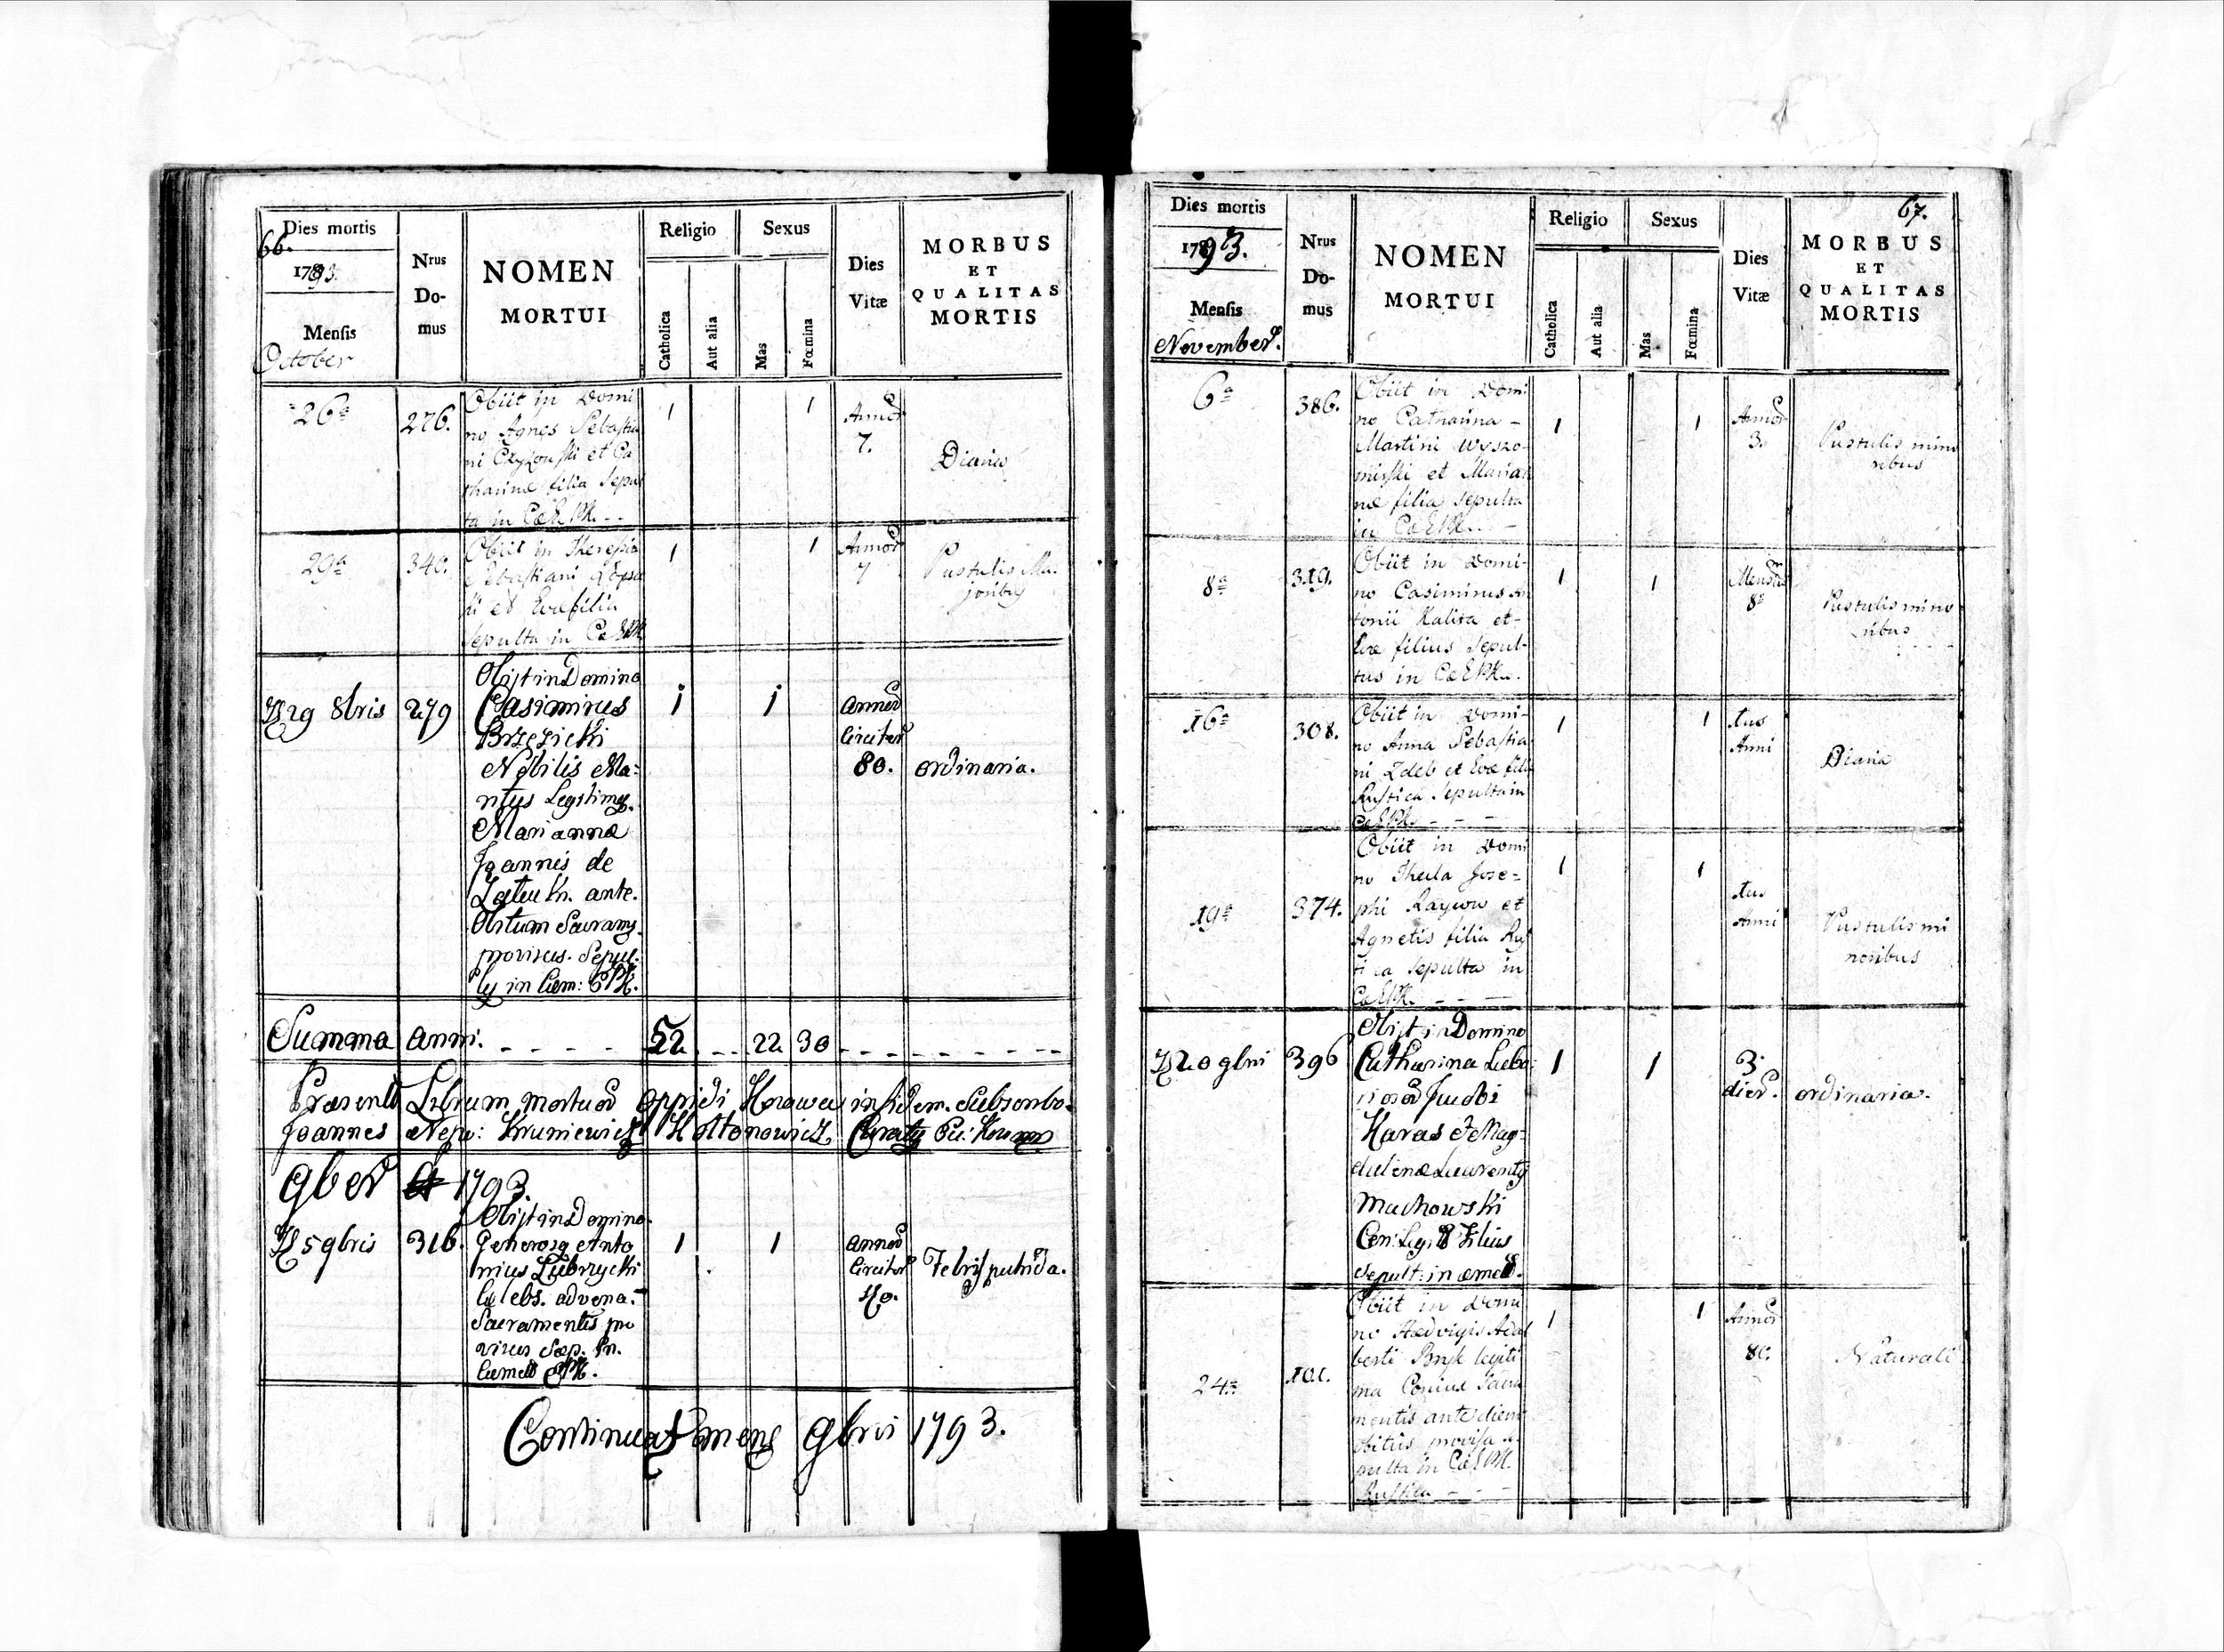 66.
Dies mortis
1793.
Mensis
October
Nrus
Do-
mus
NOMEN
MORTUI
Religio
Catholica
Aut alia
Sexus
Mas
Fœmina
Dies
Vitæ
MORBUS
ET
QUALITAS
MORTIS
26a
276.
Obiit in Domi
no Agnes Sebastia
ni et Ca
tharinæ filia Sepul
ta in
1
1
Annor
7.
Diaria
29a
340.
Obiit in Theresia
Sebastiani
et Evæ filia
Sepulta in
1
1
Annor
7
Pustulis Ma-
joribus
29 8bris
279
Obijt in Domino
Casimirus
Brzezicki
Nobilis Ma:
ritus Legitimus
Mariannæ
Joannis de
ante.
Obitum Sacramen
provisus. Sepul:
in Cœm:
1
1
Annor
Circiter
80.
ordinaria.
Summa anni. - - - - 52 - - 22 30 - - - - - - -
Præsentem Librum Mortuor Oppidi in fidem. Subscribo
Joannes Nepo:
9ber 1793.
5 9bris
316.
Obijt in Domino
Generosus Anto
nius
Cælebs. advena.
Sacramentis pro
visus Sep. in.
1
1
Annor
Circiter
40.
Febris putrida.
Continuat mens 9bris 1793.
67.
Dies mortis
1793.
Mensis
November.
Nrus
Do-
mus
NOMEN
MORTUI
Religio
Catholica
Aut alia
Sexus
Mas
Fœmina
Dies
Vitæ
MORBUS
ET
QUALITAS
MORTIS
6a
386.
Obiit in Domi
no Catharina -
Martini Wyszo-
mirski et Marian
næ filia Sepulta
in
1
1
Annor
3.
Pustulis mino
ribus
8a
319.
Obiit in Domi-
no Casimirus An
tonii Kalita et
Evæ filius Sepul-
tus in
1
1
Mensiu
8
Pustulis mino
ribus
16a
308.
Obiit in Domi-
no Anna Sebastia
ni Zdeb et Evæ filia
Rustica Sepulta in
1
1
1us
Anni
Diaria
19a
374.
Obiit in Domi
no Thecla Jose=
phi et
Agnetis filia Rus
tica Sepulta in
1
1
1us
Anni
Pustulis mi
noribus
20 9bris
396
Obijt in Domino
Catharina
Jacobi
Karas et Mag=
dalenæ Laurentij
Machowski
Filius
Sepult: in
1
1
3
dier.
ordinaria.
24a
101.
Obiit in Domi
no Hedvigis Adal
berti legiti
ma Coniux Sacra
mentis ante diem
obitûs provisa Se
pulta in
Rustica - - -
1
1
Annor
80.
Naturali